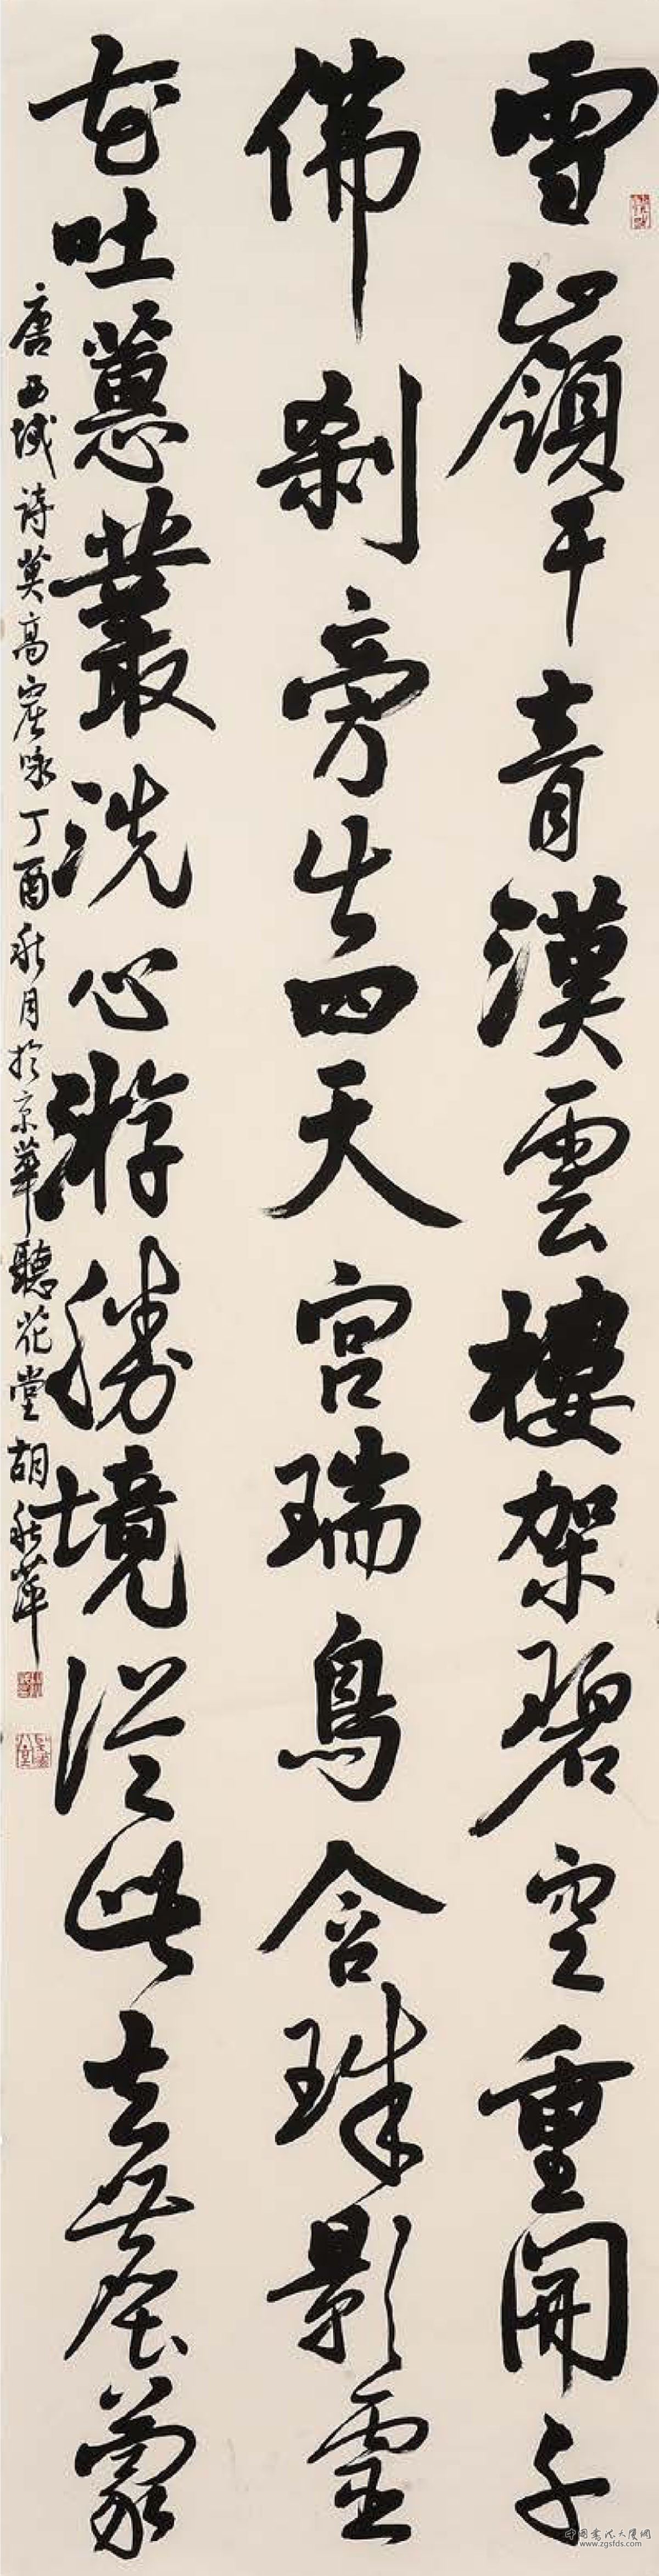 雪嶺干青漢雲樓架碧空重開千
佛剎旁出四天宮瑞鳥含珠影靈
花吐蕙叢洗心游勝境從此去塵蒙
唐西域詩莫高窟咏丁酉秋月於京華聽花堂胡秋萍
中国书法大厦网
www.zgsfds.com